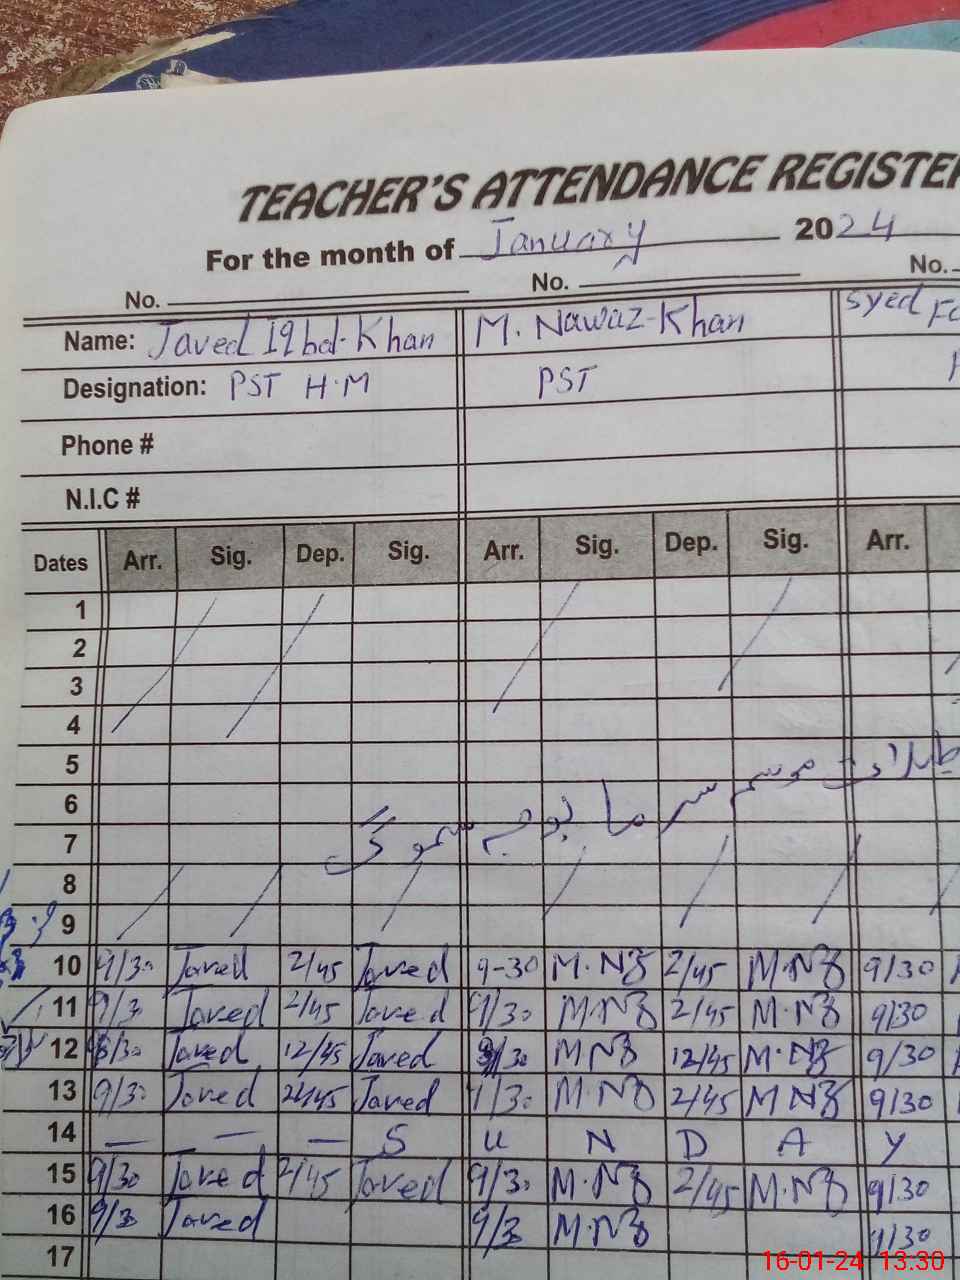 TEACHER'S ATTENDANCE REGISTER
For the month of January 2024
No. No. No.
Name: Javed Iqbal-Khan M. Nawaz-Khan Syed
Designation: PST H.M PST
Phone #
N.I.C #
Dates Arr. Sig. Dep. Sig. Arr. Sig. Dep. Sig. Arr.
1
2
3
4
5
موسم سرما بوجہ سموگ
6
7
8
9
10 9/30 Javed 2/45 Javed 9-30 M.NZ 2/45 M.NZ 9/30
11 9/30 Javed 2/45 Javed 9/30 M.NZ 2/45 M.NZ 9/30
12 8/30 Javed 12/45 Javed /30 M NZ 12/45 M.NZ 9/30
13 9/30 Javed 2/45 Javed 9/30 M.NZ 2/45 M NZ 9/30
14 — — — S U N D A Y
15 9/30 Javed 2/45 Javed 9/30 M.NZ 2/45 M.NZ 9/30
16 9/3 Javed 9/3 M.NZ 9/30
17
16-01-24 13.30